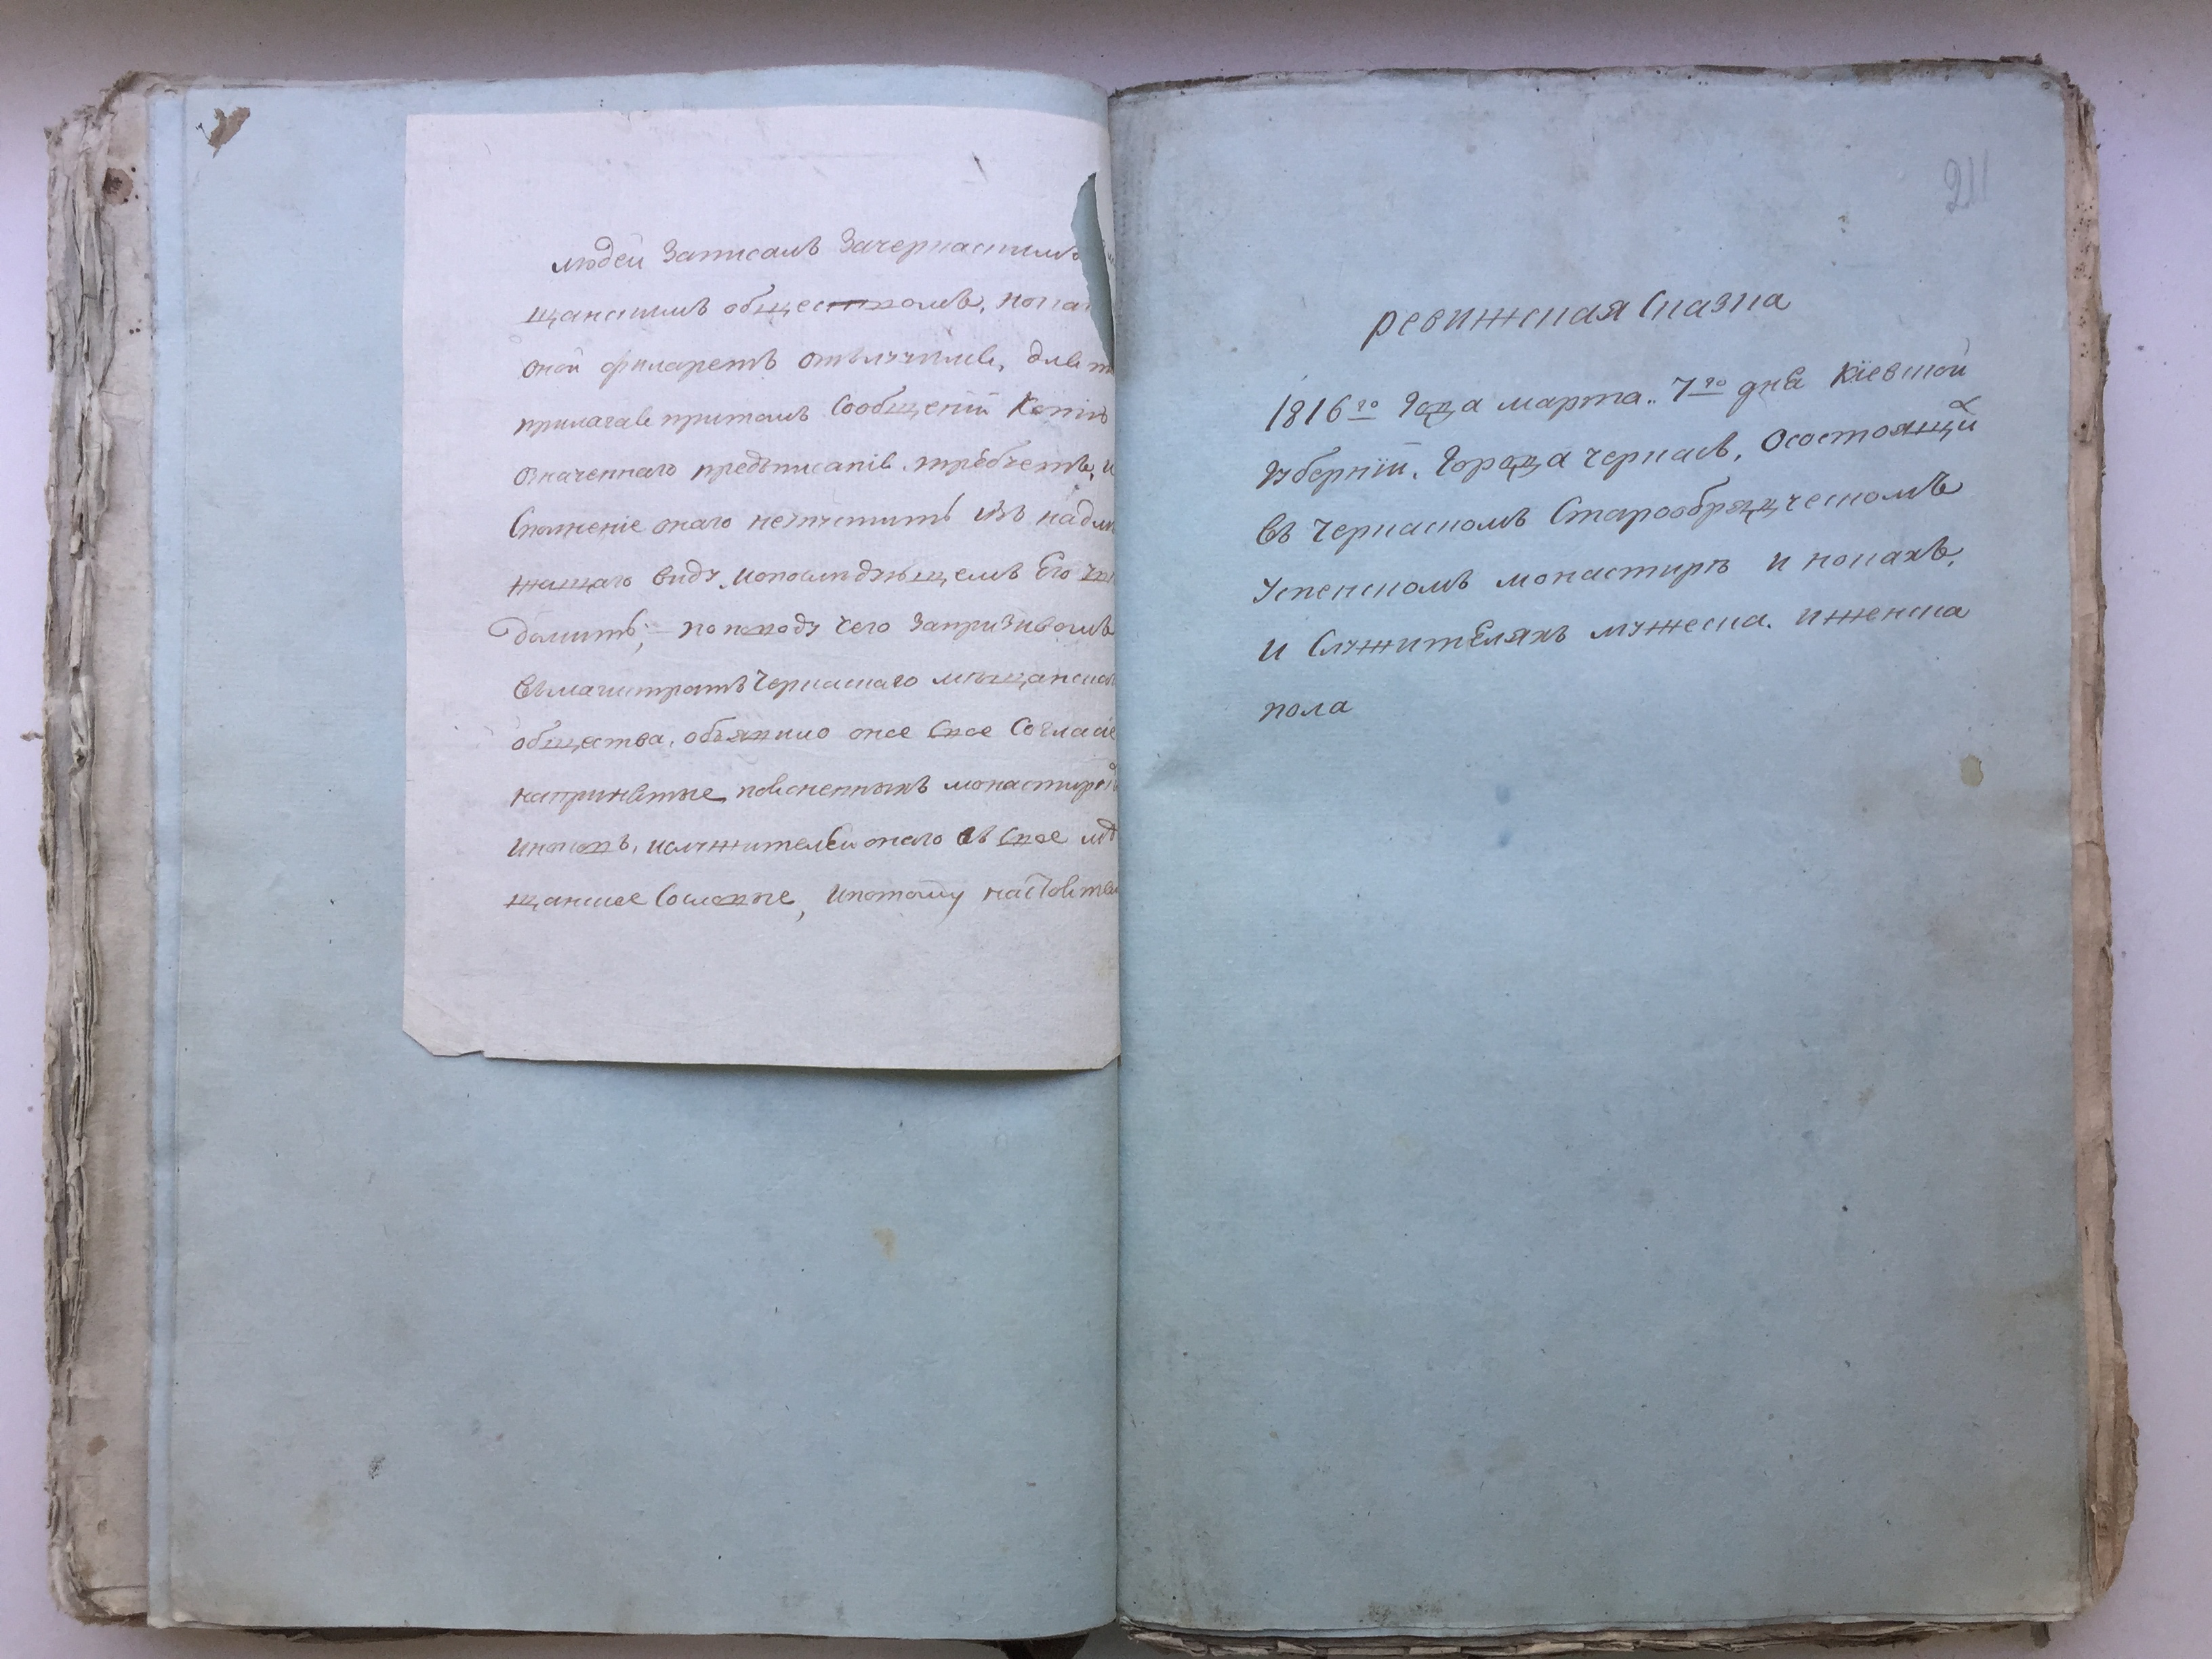 людей записалъ зачеркаскимъ
щанскимъ обществомъ, когда
оной филаретъ отълучился, для
прилагая притомъ Сообщеніи Копію
означеннаго предъписанія требуетъ, и
Сполненіе онаго неупустить изъ надле
жащаго виду, ипослѣдующемъ Его уве
домить; поповоду чего запризивомъ
въмагистратъ Черкаскаго мѣщанскаго
общества, объявило оное Свое Согласіе
напринятие поясненныхъ монастыря
иноковъ, ислужителей онаго въ Свое мѣ
щанское Сословие, ипотому настоятел
211
ревижская Сказка
1816го Года марта.. 7го дня Кіевской
Губерніи, Города черкасъ, Осостоящих
въ Черкаскомъ Старообрядческомъ
Успенскомъ монастирѣ инокахъ,
и Служителяхъ мужеска. иженска
пола